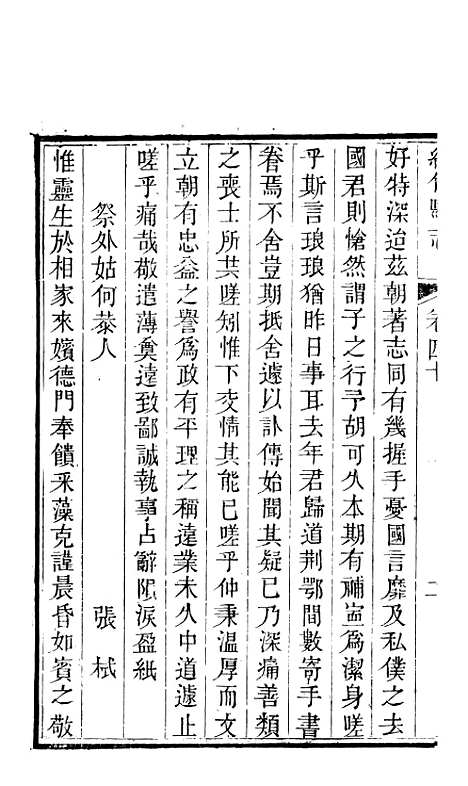 卷四十
好特深迨茲朝著志同有幾握手憂國言靡及私僕之去
國君則愴然謂子之行予胡可久本期有補豈為潔身嗟
乎斯言琅琅猶昨日事耳去年君歸道荆鄂間數寄手書
眷焉不舍豈期抵舍遽以訃傳始聞其疑已乃深痛善類
之喪士所共嗟矧惟下交情其能已嗟乎仲秉温厚而文
立朝有忠益之譽為政有平理之稱遠業未久中道遽止
嗟乎痛哉敬遣薄奠遠致鄙誠執事占辭隕淚盈紙
祭外姑何恭人　張栻
惟靈生於相家來嬪德門奉饋采藻克謹晨昏如賓之敬